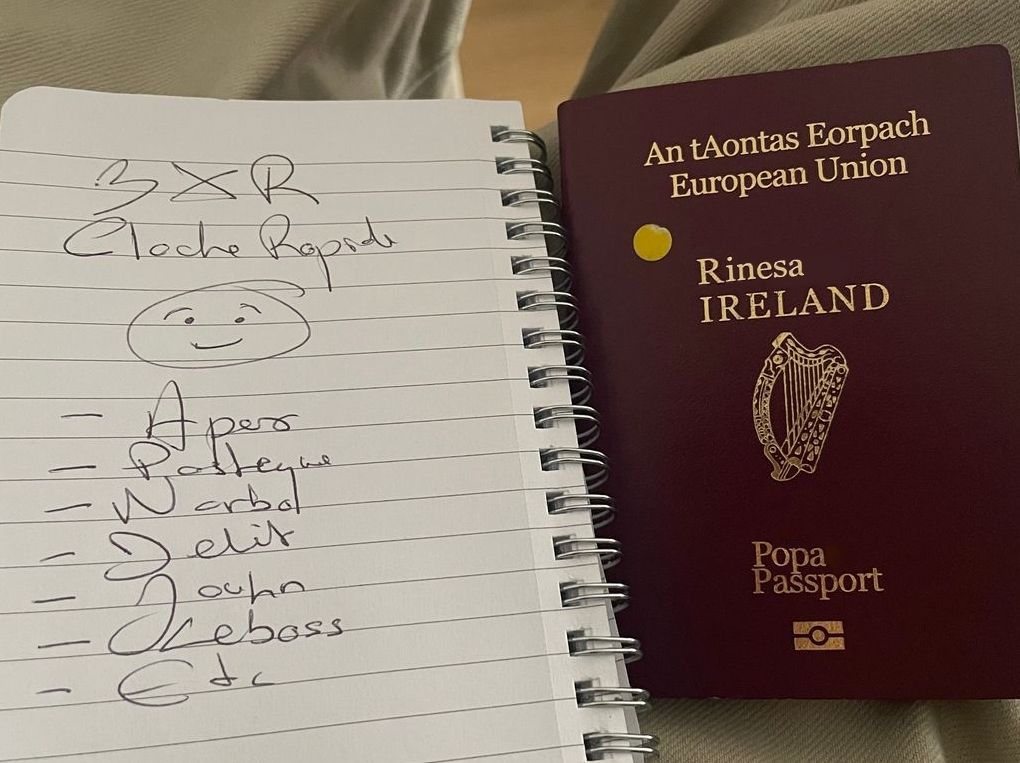 3XR
Cloche Rapide
- Apero
- Pasteque
- Narbal
- Delit
- Etc
An tAontas Eorpach
European Union
Rinesa
IRELAND
Popa
Passport